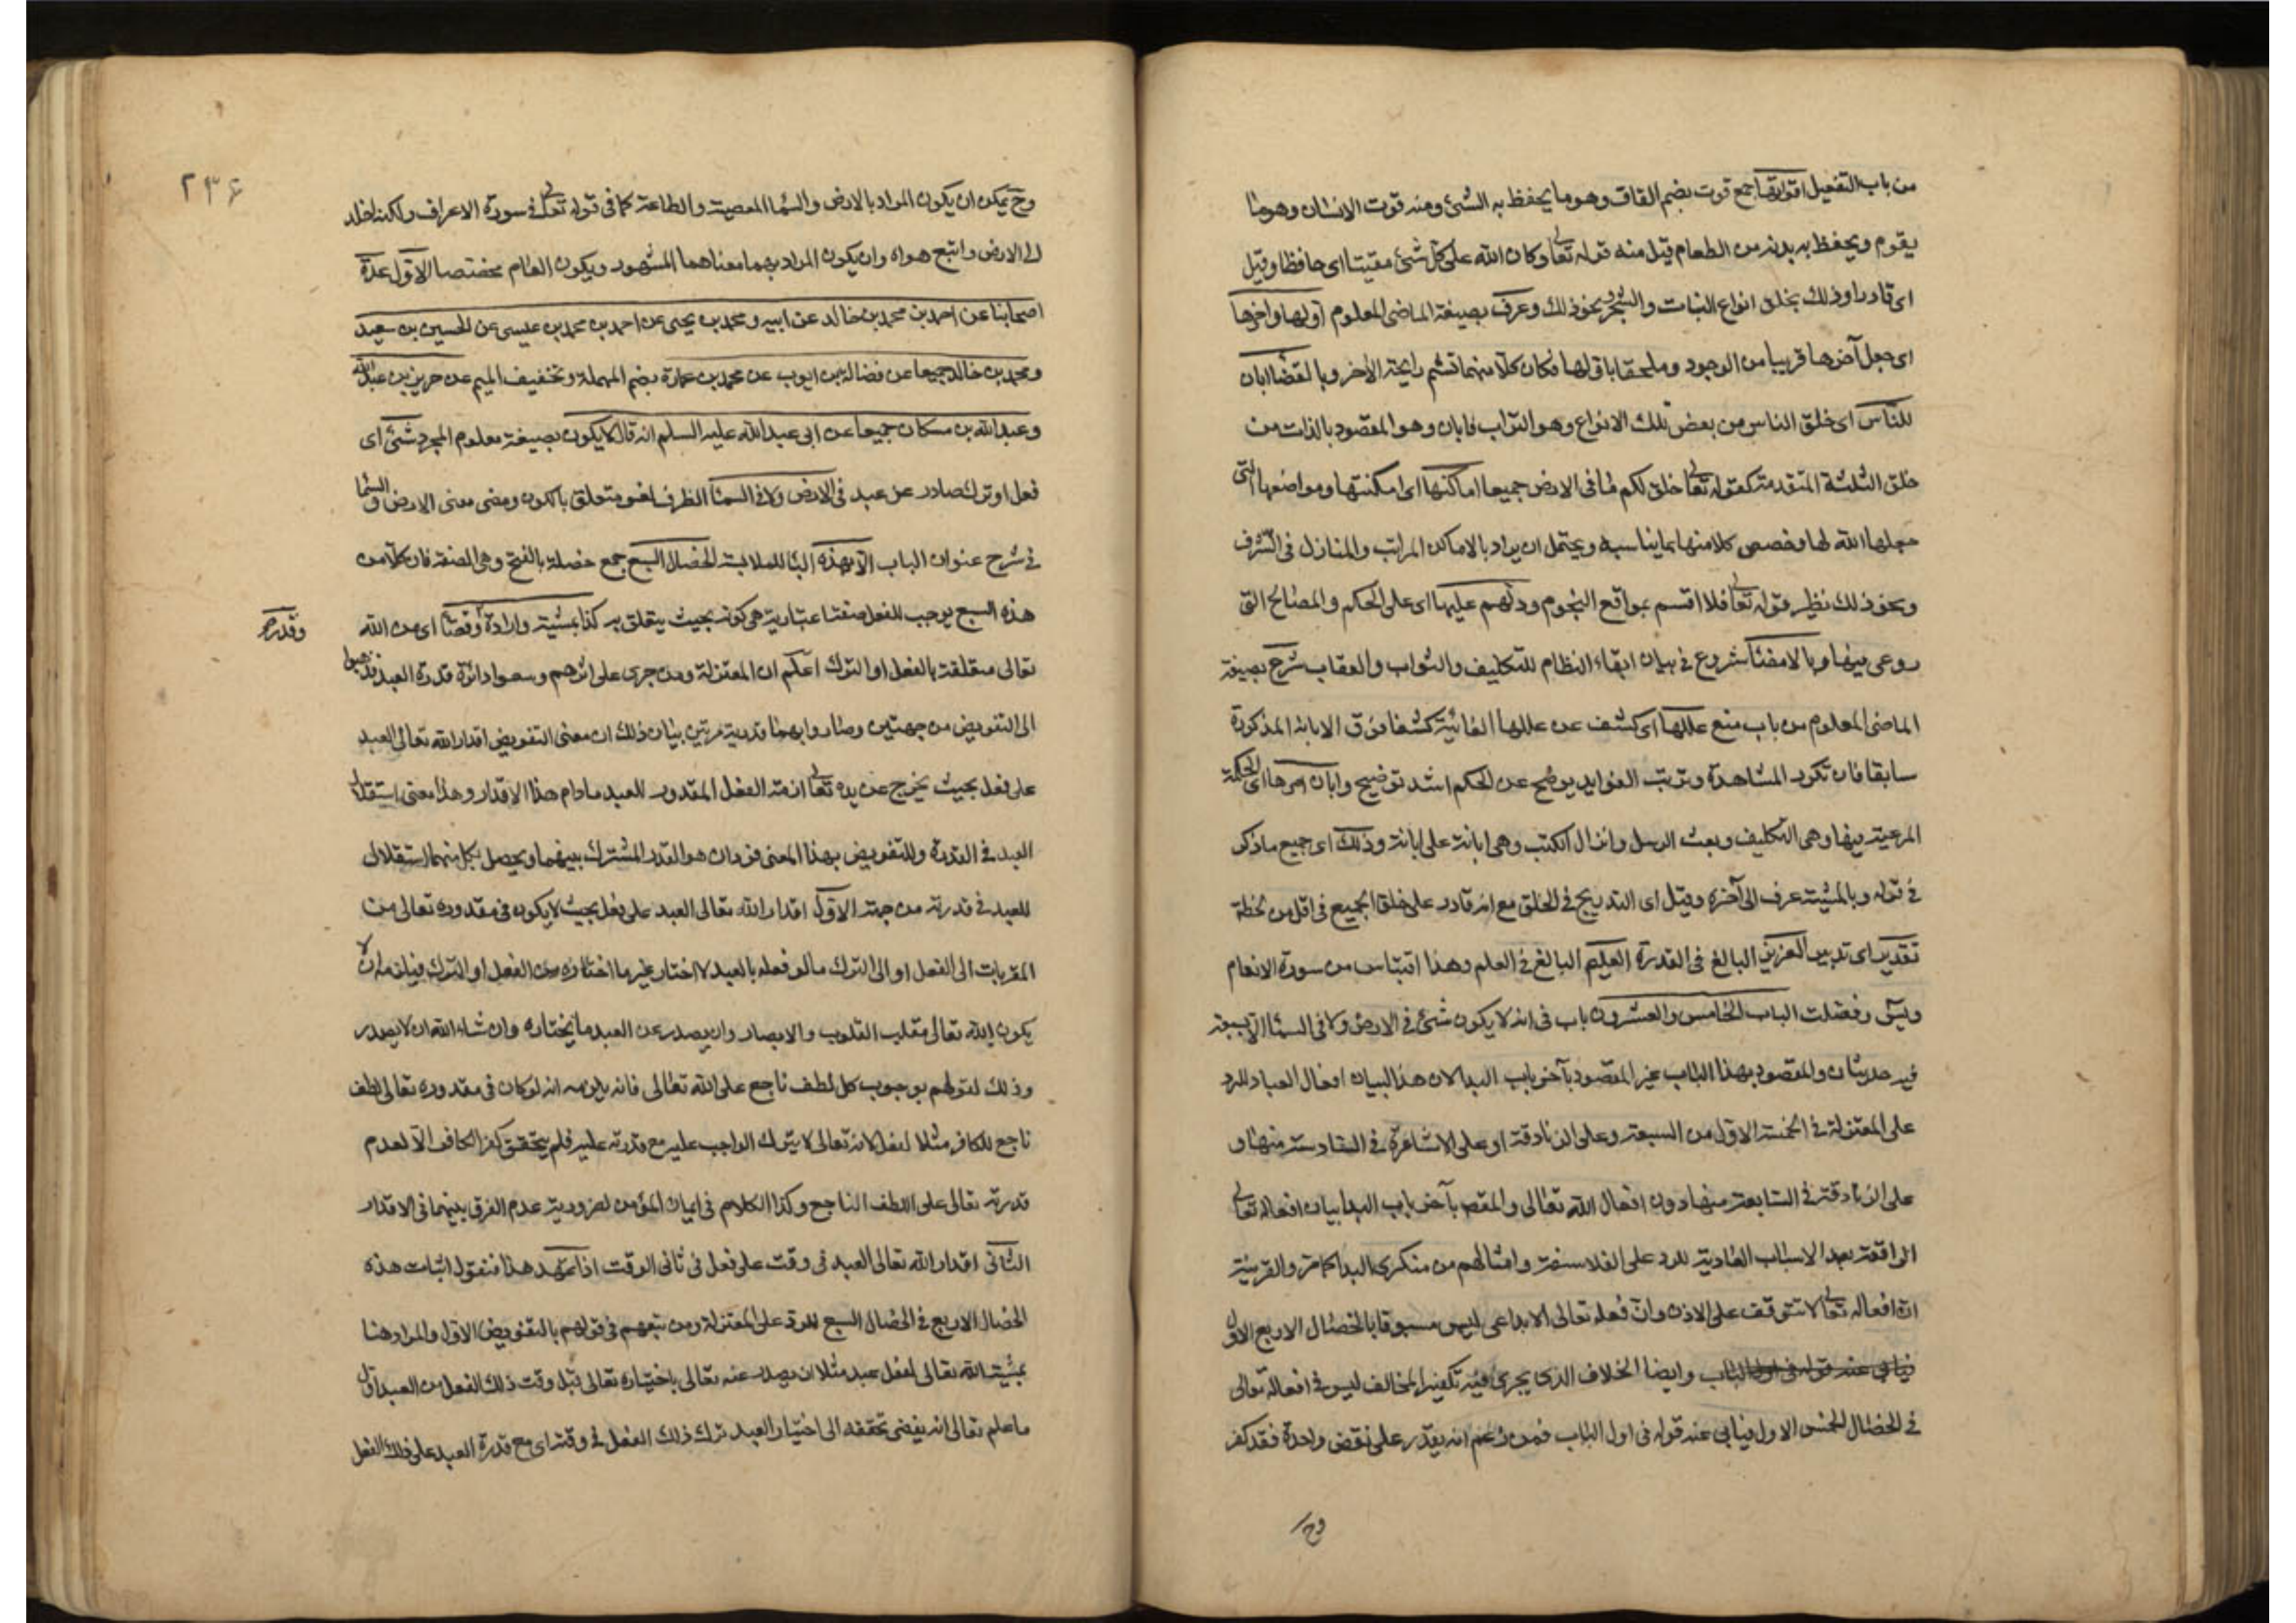 من باب التفعيل اقواتها جمع قوت بضم القاف وهو ما يحفظ به الشئ ومنه قوت الانسان وهو ما
يقوم ويحفظ به بدنه من الطعام قيل منه قوله تعالى وكان الله على كل شئ مقيتا اى حافظا وقيل
اى قادرا وذلك بخلق انواع النبات والشجر ونحو ذلك وعرف بصيغة الماضى المعلوم اولها واخرها
اى جعل آخرها قريبا من الوجود وملحقا باولها فكان كلا منهما تشم رايحة الآخر وبالقضا ابان
للناس اى خلق الناس من بعض تلك الانواع وهو التراب فابان وهو المقصود بالذات من
خلق الثلثة المتقدمة كقوله تعالى خلق لكم ما فى الارض جميعا اماكنها اى امكنتها ومواضعها التى
جعلها الله لها وخصص كلا منها بما يناسبه ويحتمل ان يراد بالاماكن المراتب والمنازل فى الشرف
ونحو ذلك نظير قوله تعالى فلا اقسم بمواقع النجوم ودلهم عليها اى على الحكم والمصالح التى
روعى فيها وبالامضا شروع فى بيان ابقاء النظام للتكليف والثواب والعقاب شرح بصيغة
الماضى المعلوم من باب منع عللها اى كشف عن عللها الغائية كشفا فوق الابانة المذكورة
سابقا فان تكرر المشاهدة وترتب الفوايد يوضح عن الحكم اشد توضيح وابان امرها اى الحكمة
المرعية فيها وهى التكليف وبعث الرسل وانزال الكتب وهى ابانة على ابانة وذلك اى جميع ما ذكر
فى قوله وبالمشية عرف الى آخره وقيل اى التدريج فى الخلق مع انه قادر على خلق الجميع فى اقل من لحظة
تقدير اى تدبير العزيز البالغ فى القدرة العليم البالغ فى العلم وهذا اقتباس من سورة الانعام
ويس وفصلت الباب الخامس والعشرون باب فى انه لا يكون شئ فى الارض ولا فى السما الا بسبعة
فيه حديثان والمقصود بهذا الباب غير المقصود بآخر باب البدا لان هذا البيان افعال العباد للرد
على المعتزلة فى الخمسة الاول من السبعة وعلى الزنادقة او على الاشاعرة فى السادسة منها و
على الزنادقة فى السابعة منها دون افعال الله تعالى والمقصود بآخر باب البدا بيان افعاله تعالى
الواقعة بعد الاسباب العادية للرد على الفلاسفة وامثالهم من منكرى البدا كما مر والقرينة
ان افعاله تعالى لا تتوقف على الاذن وان فعله تعالى الابداعى ليس مسبوقا بالخصال الاربع الاول
فيابى عنه قوله فى اول الباب وايضا الخلاف الذى يجرى فيه تكفير المخالف ليس فى افعاله تعالى
فى الخصال الخمس الاول فيابى عنه قوله فى اول الباب فمن زعم انه يقدر على نقض واحدة فقد كفر
وح
٢٣٤
وح يمكن ان يكون المراد بالارض والسما المعصية والطاعة كما فى قوله تعالى فى سورة الاعراف ولكنه اخلد
الى الارض واتبع هواه وان يكون المراد بهما معناهما المشهور ويكون العام مخصصا الاول عدة
اصحابنا عن احمد بن محمد بن خالد عن ابيه ومحمد بن يحيى عن احمد بن محمد بن عيسى عن الحسين بن سعيد
ومحمد بن خالد جميعا عن فضالة بن ايوب عن محمد بن عمارة بضم المهملة وتخفيف الميم عن حريز بن عبد الله
وعبد الله بن مسكان جميعا عن ابى عبد الله عليه السلم انه قال لا يكون بصيغة معلوم المجرد شئ اى
فعل او ترك صادر عن عبد فى الارض ولا فى السما الظرف لغو متعلق بالكون ومضى معنى الارض والسما
فى شرح عنوان الباب الا بهذه البا للملابسة الخصال السبع جمع خصلة بالفتح وهى الصفة فان كلا من
هذه السبع يوجب للفعل صفة اعتبارية هى كونه بحيث يتعلق به كذا بمشية وارادة وقضا اى من الله
وقدر صح
تعالى متعلقة بالفعل او الترك اعلم ان المعتزلة ومن جرى على اثرهم وسعوا دائرة قدرة العبد فذهبوا
الى التفويض من جهتين وصاروا بهما قدرية مرتين بيان ذلك ان معنى التفويض اقدار الله تعالى العبد
على فعل بحيث يخرج عن يده تعالى ازمة الفعل المقدور للعبد ما دام هذا الاقدار وهذا معنى استقلال
العبد فى القدرة وللتفويض بهذا المعنى فردان هو القدر المشترك بينهما ويحصل بكل منهما استقلال
للعبد فى قدرته من جهة الاول اقدار الله تعالى العبد على فعل بحيث لا يكون فى مقدوره تعالى من
المقربات الى الفعل او الى الترك ما لو فعله بالعبد لاختار غير ما اختاره من الفعل او الترك فيلزم ان لا
يكون الله تعالى مقلب القلوب والابصار وان يصدر عن العبد ما يختاره وان شاء الله ان لا يصدر
وذلك لقولهم بوجوب كل لطف ناجع على الله تعالى فانه يلزمه انه لو كان فى مقدوره تعالى لطف
ناجع للكافر مثلا لفعل لانه تعالى لا يترك الواجب عليه مع قدرته عليه فلم يتحقق كفر الكافر الا لعدم
قدرته تعالى على اللطف الناجع وكذا الكلام فى ايمان المؤمن لضرورية عدم الفرق بينهما فى الاقدار
الثانى اقدار الله تعالى العبد فى وقت على فعل فى ثانى الوقت اذا تمهد هذا فنقول اثبات هذه
الخصال الاربع فى الخصال السبع للرد على المعتزلة ومن تبعهم فى قولهم بالتفويض الاول والمراد هنا
بمشية الله تعالى لفعل عبد مثلا ان يصدر عنه تعالى باختياره تعالى قبل وقت ذلك الفعل من العبد اول
ما علم تعالى انه يفضى تحققه الى اختيار العبد ترك ذلك الفعل فى وقته اى مع قدرة العبد على ذلك الفعل